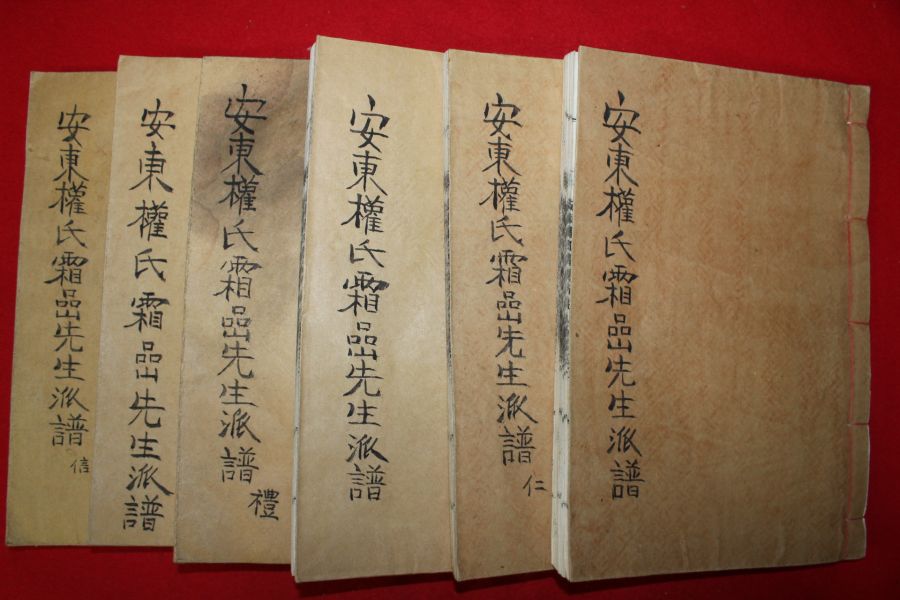 安東權氏霜嵒先生派譜
安東權氏霜嵒先生派譜 仁
安東權氏霜嵒先生派譜
安東權氏霜嵒先生派譜 禮
安東權氏霜嵒先生派譜
安東權氏霜嵒先生派譜 信